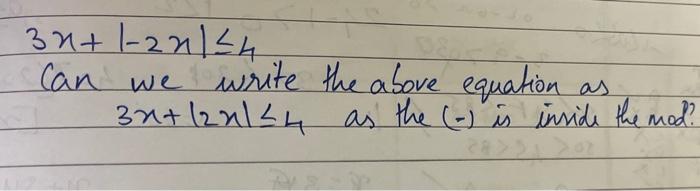 3x + |-2x| ≤ 4
Can we write the above equation as
3x + |2x| ≤ 4 as the (-) is inside the mod?